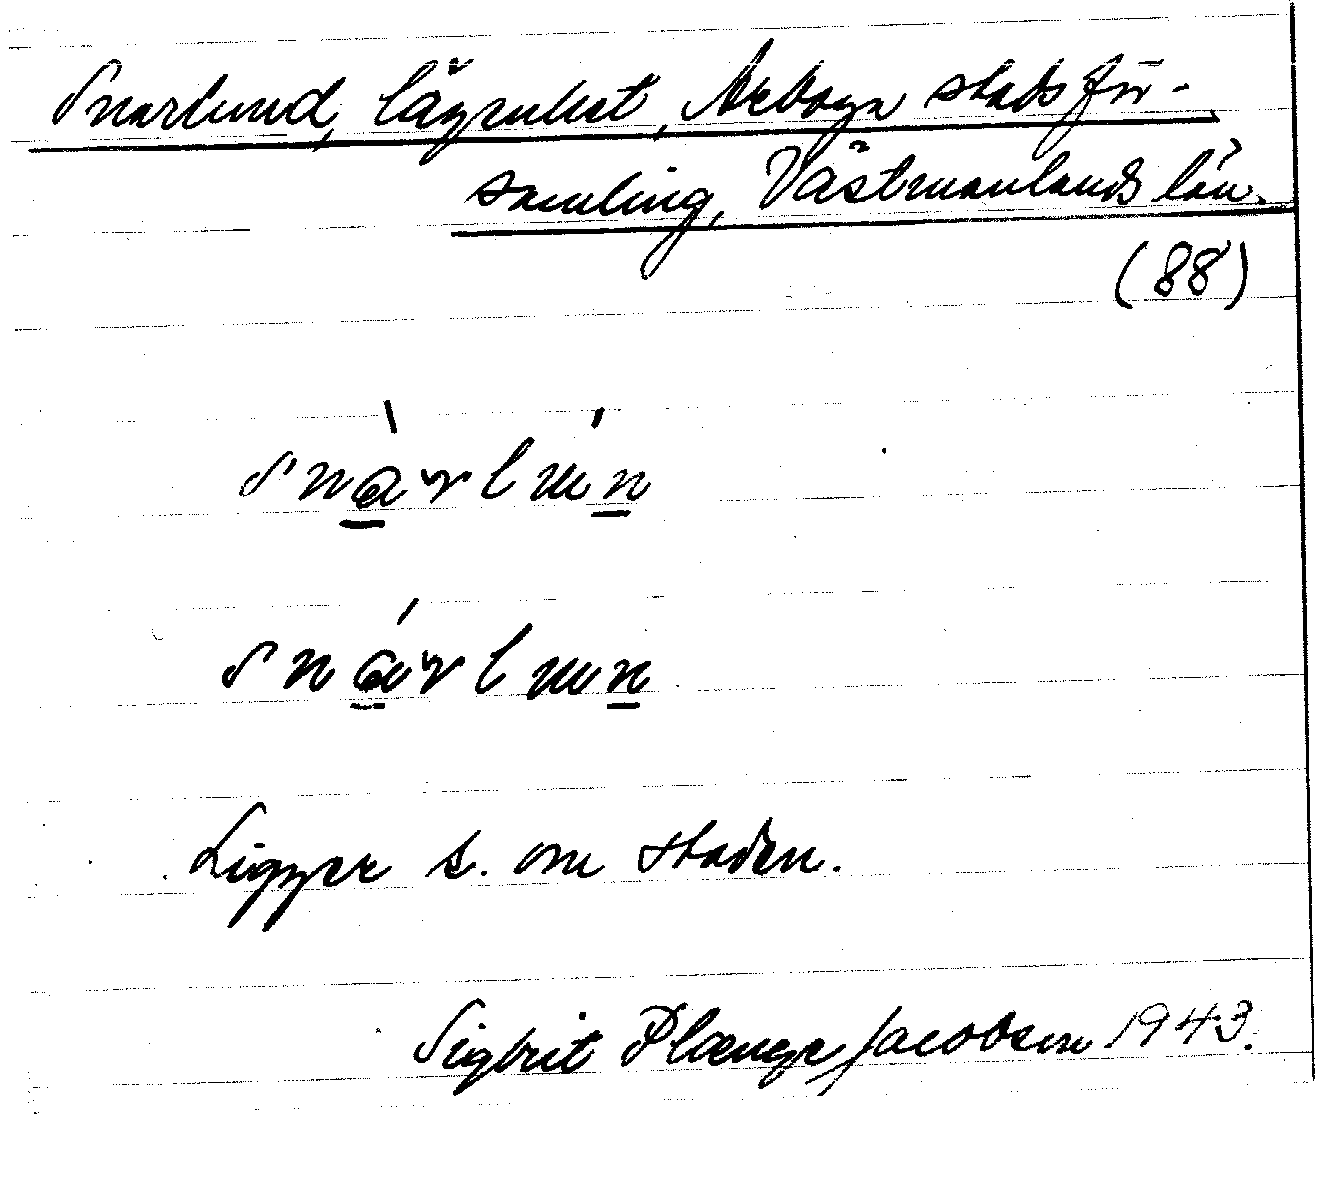 Snarlund, lägenhet, Arboga stadsför-
samling, Västmanlands län.
(88)
snàrlún
snárlun
Ligger s. om staden.
Sigbrit Plænge Jacobson 1943.